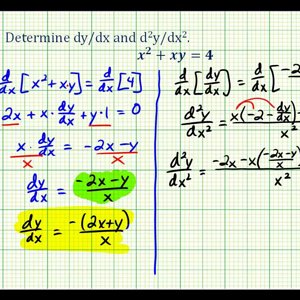 Determine dy/dx and d²y/dx².
x² + xy = 4
d/dx [x² + x·y] = d/dx [4]
2x + x · dy/dx + y·1 = 0
x · dy/dx / x = -2x - y / x
dy/dx = -2x - y / x
dy/dx = -(2x+y) / x
d/dx [dy/dx] = d/dx [-2
d²y/dx² = x(-2 - dy/dx) - / x²
d²y/dx² = -2x - x(-2x-y/x) / x²